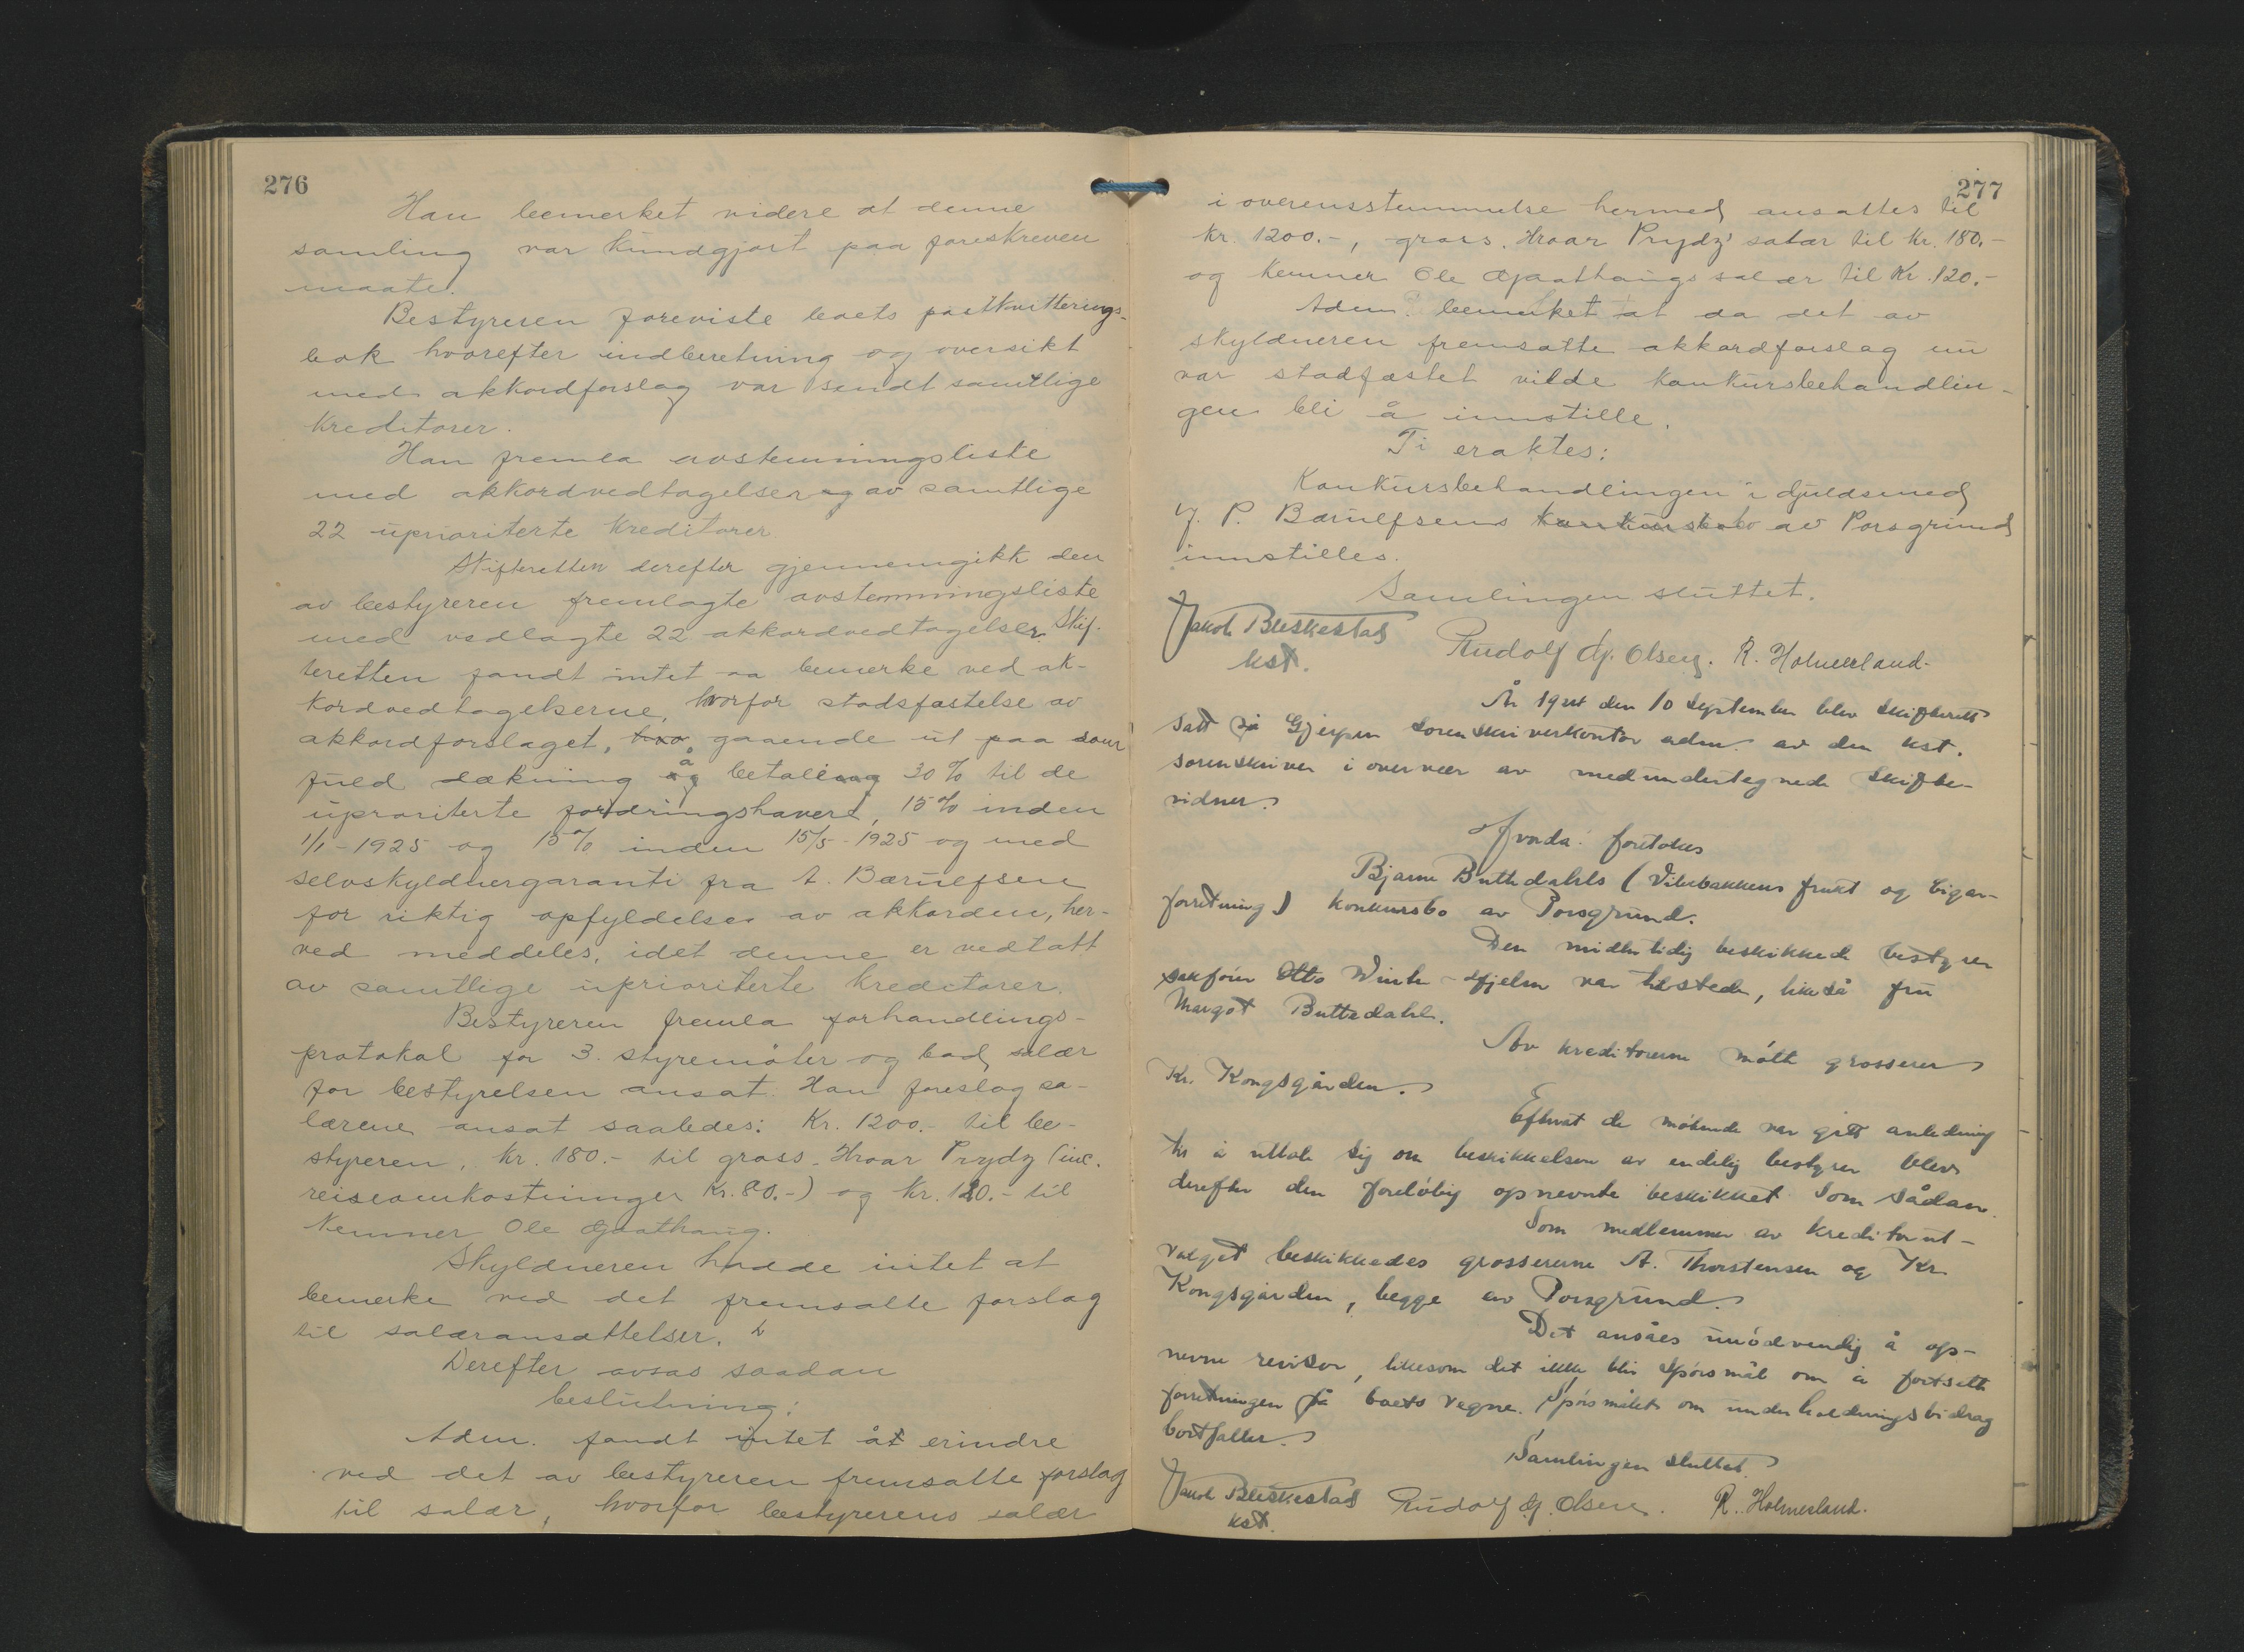 276
Han bemerket videre at denne
samling var kundgjort paa foreskreven
maate.
Bestyreren foreviste boets postkvitterings-
bok hvorefter indberetning og oversikt
med akkordforslag var sendt samtlige
kreditorer.
Han fremla avstemningsliste
med akkordvedtagelser av samtlige
22 uprioriterte kreditorer
Skifteretten derefter gjennemgikk den
av bestyreren fremlagte avstemningsliste
med vedlagte 22 akkordvedtagelser. Skif-
teretten fandt intet aa bemerke ved ak-
kordvedtagelserne, hvorfor stadsfæstelse av
akkordforslaget, gaaende ut paa
fuld dækning betale 30% til de
uprioriterte fordringshavere, 15% inden
1/1-1925 og 15% inden 15/5-1925 og med
selvskyldnergaranti fra A. Bærulfsen
for riktig opfyldelse av akkorden, her-
ved meddeles, idet denne er vedtatt
av samtlige uprioriterte kreditorer.
Bestyreren fremla forhandlings-
protokol for 3. styremøter og bad salær
for bestyrelsen ansat. Han foreslog sa-
lærene ansat saaledes: Kr. 1200.- til be-
styreren, kr. 180.- til gross. Hroar Prydz (inc.
reiseomkostninger Kr. 80.-) og Kr. 120.- til
Kemner Ole Gaathaug.
Skyldneren hadde intet at
bemerke ved det fremsatte forslag
til salæransættelser.
Derefter avsas saadan
beslutning:
Adm. fandt intet at erindre
ved det av bestyreren fremsatte forslag
til salær, hvorfor bestyrerens salær
277
i overensstemmelse hermed ansattes til
kr. 1200.-, gross. Hroar Prydz' salær til kr. 180.-
og Kemner Ole Gaathaugs salær til Kr. 120.-
Adm. bemerket at da det av
skyldneren fremsatte akkordforslag nu
var stadfæstet vilde konkursbehandlin-
gen bli å innstille.
Ti eraktes:
Konkursbehandlingen i Guldsmed
J. P. Bærulfsens konkursbo av Porsgrund
innstilles.
Samlingen sluttet.
Jakob Bleskestad
kst.
Rudolf Gj. Olsen. R. Holmesland.
År 1924 den 10 september blev skifterett
satt på Gjerpen sorenskriverkontor adm. av den kst.
sorenskriver i overvær av medundertegnede skifte-
vidner.
Hvorda foretokes
Bjarne Buttedahls (Vilebakkens frukt og cigar-
forretning) konkursbo av Porsgrund.
Den midlertidig beskikkede bestyrer
sakfører Otto Winter-Hjelm var tilstede, likeså fru
Margot Buttedahl.
Av kreditorerne møtte grosserer
Kr. Kongsgården.
Efterat de møtende var gitt anledning
til å uttale sig om beskikkelsen av endelig bestyrer blev
derefter den foreløbig opnevnte beskikket som sådan.
Som medlemmer av kreditorut-
valget beskikkedes grossererne A. Thorstensen og Kr.
Kongsgården, begge av Porsgrund.
Det ansåes unødvendig å op-
nevne revisor, likesom det ikke blir spørsmål om å fortsette
forretningen på boets vegne. Spørsmålet om underholdningsbidrag
bortfaller.
Samlingen sluttet.
Jakob Bleskestad
kst.
Rudolf Gj. Olsen. R. Holmesland.